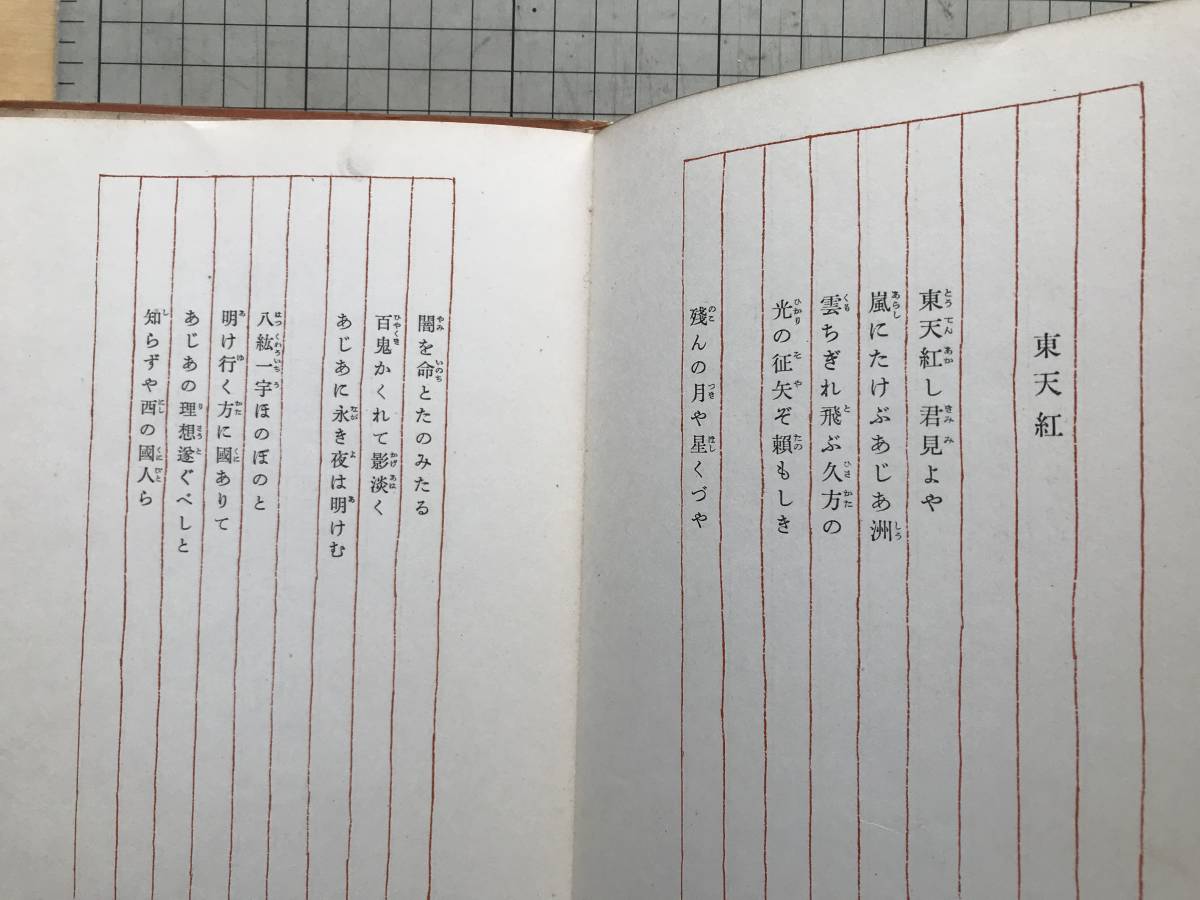 東天紅
東天紅し君見よや
嵐にたけぶあじあ洲
雲ちぎれ飛ぶ久方の
光の征矢ぞ頼もしき
殘んの月や星くづや
闇を命とたのみたる
百鬼かくれて影淡く
あじあに永き夜は明けむ
八紘一宇ほのぼのと
明け行く方に國ありて
あじあの理想遂ぐべしと
知らずや西の國人ら